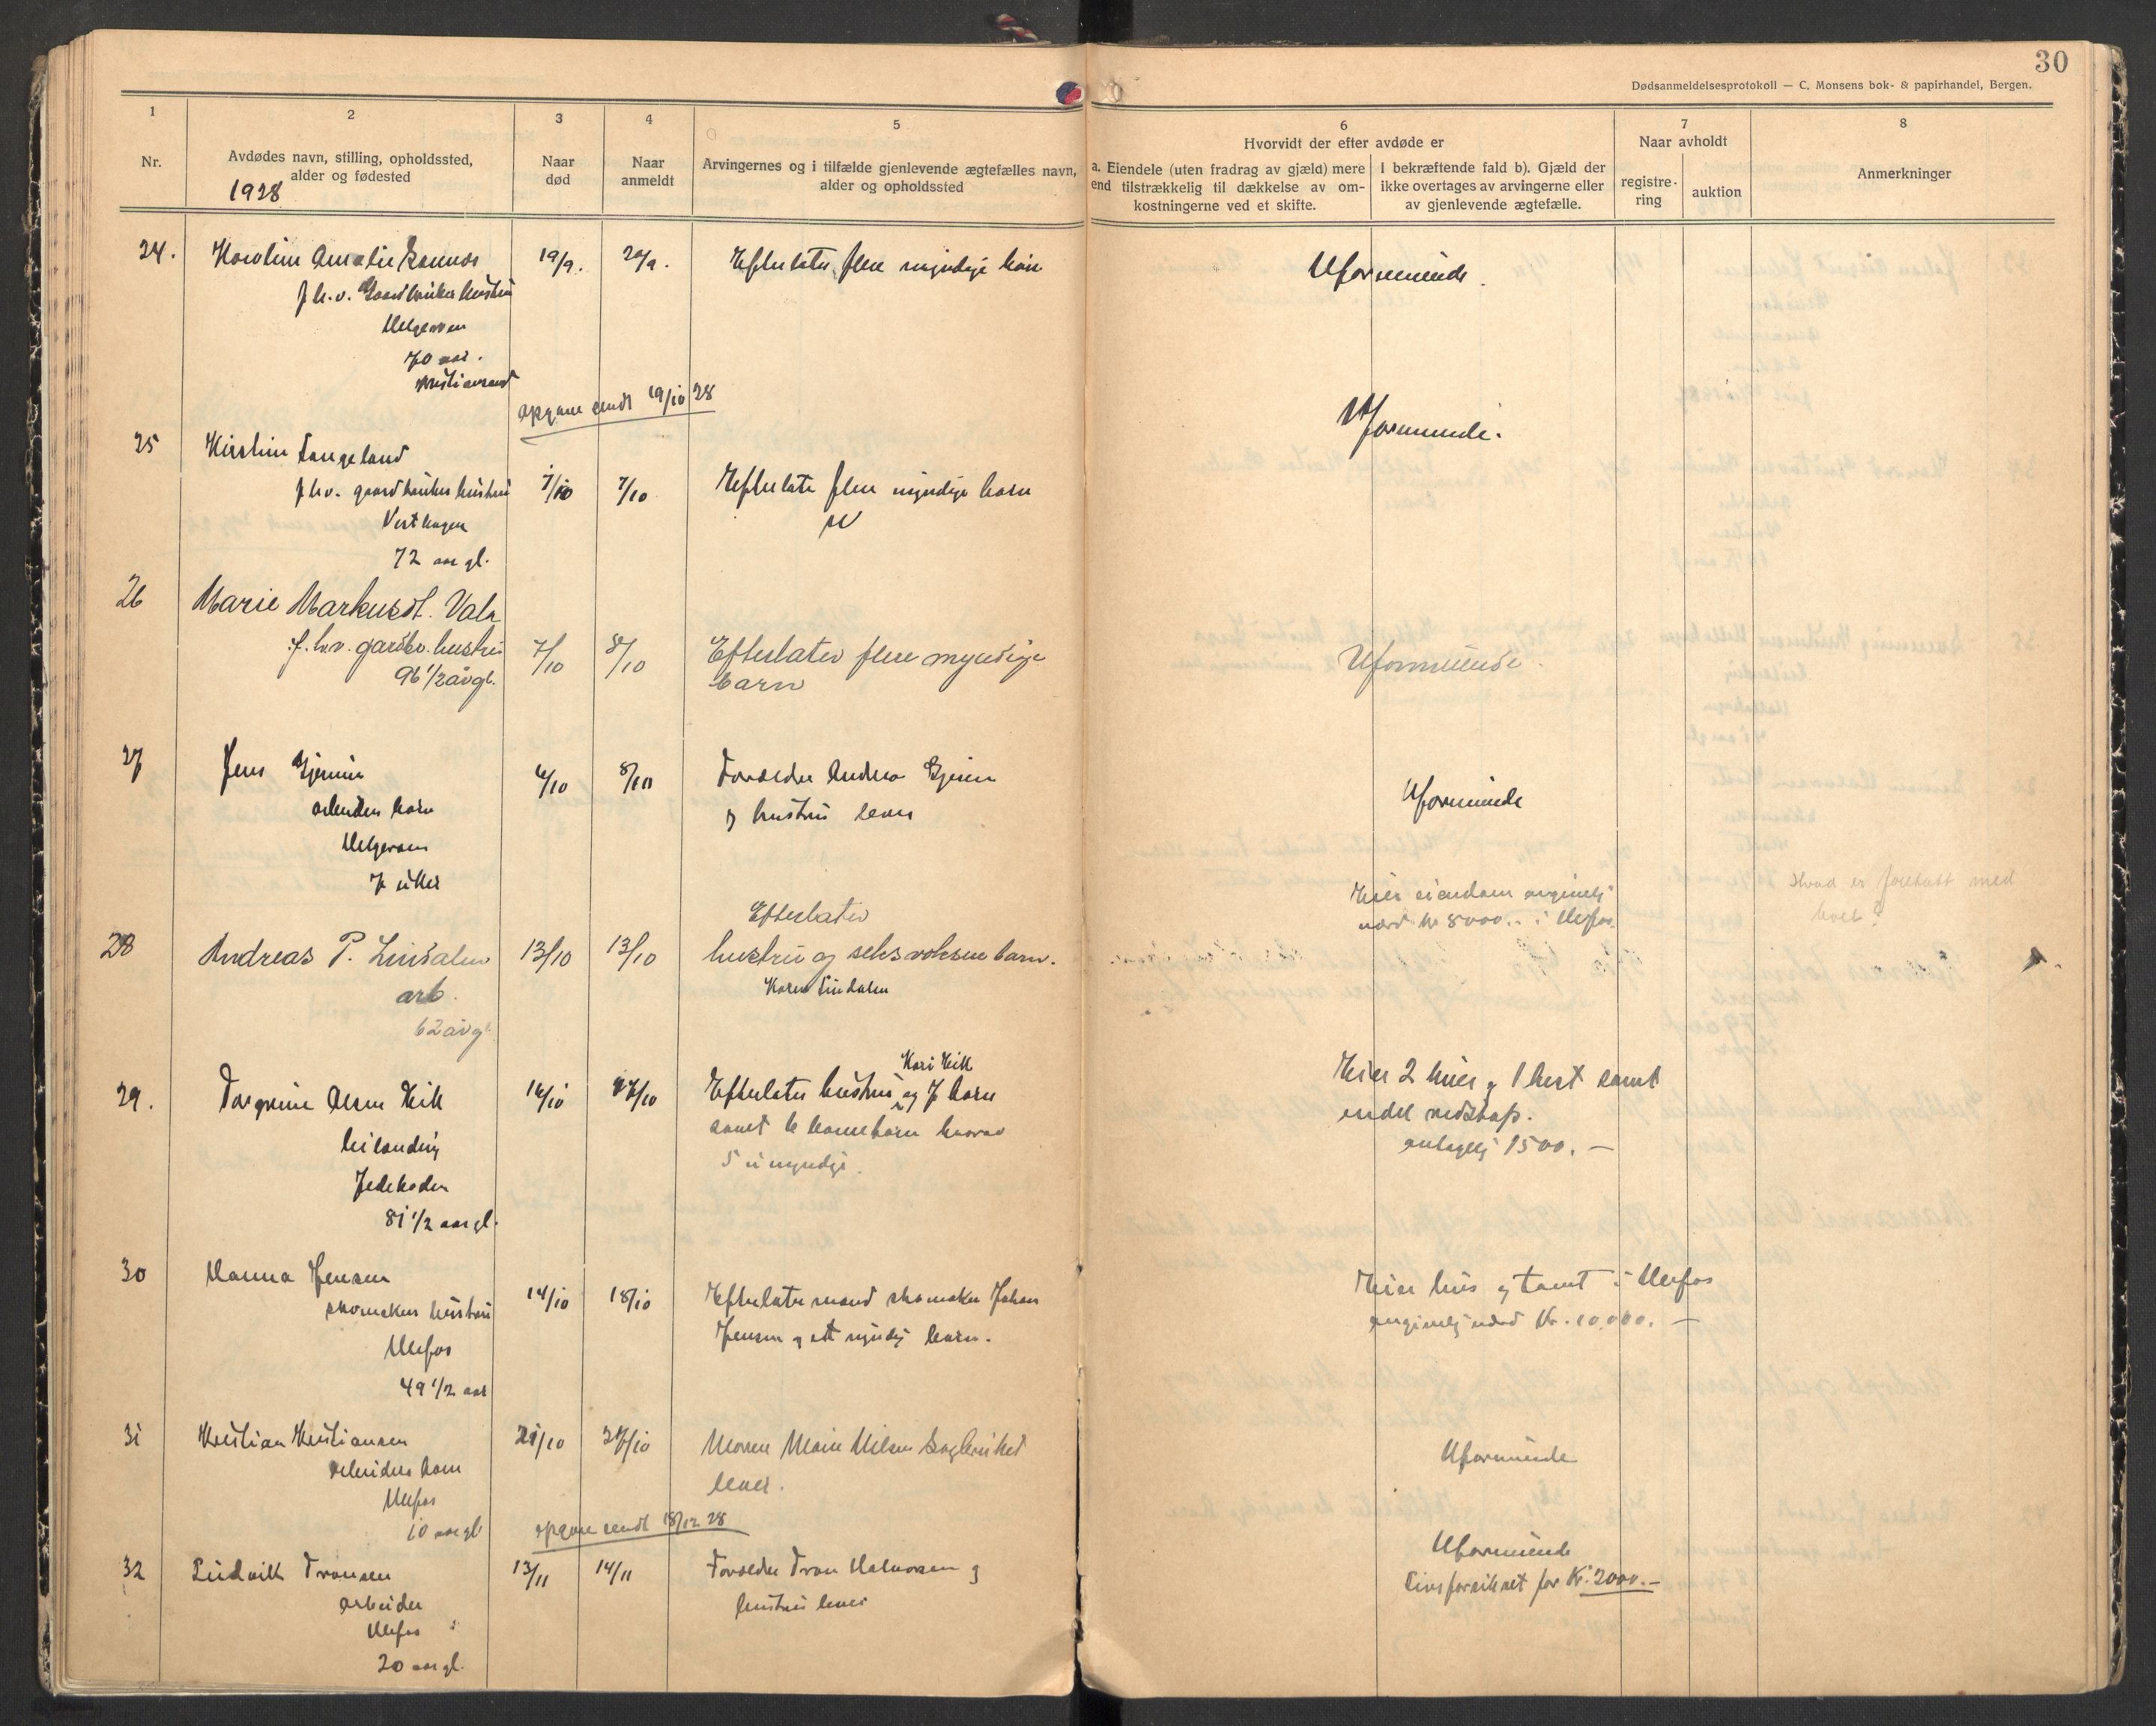 30
Dødsanmeldelsesprotokoll — C. Monsens bok- & papirhandel, Bergen.
1
Nr.
2
Avdødes navn, stilling, opholdssted,
alder og fødested
1928
3
Naar
død
4
Naar
anmeldt
5
Arvingernes og i tilfælde gjenlevende ægtefælles navn,
alder og opholdssted
6
Hvorvidt der efter avdøde er
a. Eiendele (uten fradrag av gjæld) mere
end tilstrækkelig til dækkelse av om-
kostningerne ved et skifte.
I bekræftende fald b). Gjæld der
ikke overtages av arvingerne eller
av gjenlevende ægtefælle.
7
Naar avholdt
registre-
ring
auktion
8
Anmerkninger
24.
Karoline Amalie
f.h.v. Gaardbruker hustru
Helgeroen
70 aar.
Kristiansand
19/9.
20/9.
Efterlater flere myndige barn
Uformuende.
opgave sendt 19/10 28
25
Kirstine Langeland
f.h.v. gaardbruker hustru
72 aar gl.
7/10
7/10
Efterlater flere myndige barn
Uformuende.
26
Marie Markusdt. Vala
f.h.v. gardbr. hustru
96 1/2 år gl.
7/10
8/10
Efterlater flere myndige
barn
Uformuende.
27
Jens
arbeiders barn
Helgeroen
7 uker
6/10
8/10
Forældre Andreas
og hustru lever
Uformuende
28
Andreas P. Lindalen
arb.
62 år gl.
13/10
13/10
Efterlater
hustru og seks voksne barn.
Karen Lindalen
Eier eiendom angivelig
værd kr 8000.- i Ulefos
Hvad er foretatt med
boet?
29.
Torgrim Olsen Eik
81 1/2 aar gl.
16/10
17/10
Kari Eik
Efterlater hustru og 7 barn
samt 6 barnebarn hvorav
5 umyndige.
Eier 2 kuer og 1 hest samt
endel redskap.
antagelig 1500.—
30
Hanna Jensen
skomakers hustru
Ulefos
49 1/2 aar
14/10
18/10
Efterlater mand skomaker Johan
Jensen og ett myndig barn.
Eier hus og tomt i Ulefos
angivelig værd Kr. 10,000.—
31
Kristian Kristiansen
arbeiders barn
Ulefos
10 aar gl
21/10
27/10
Moren Marie Nilsen
lever.
Uformuende
opgave sendt 18/12 28
32
Ludvik Tronsen
arbeider
Ulefos
20 aar gl.
13/11
14/11
Forældre Tron Halvorsen og
hustru lever
Uformuende
Livsforsikret for Kr. 2000.—